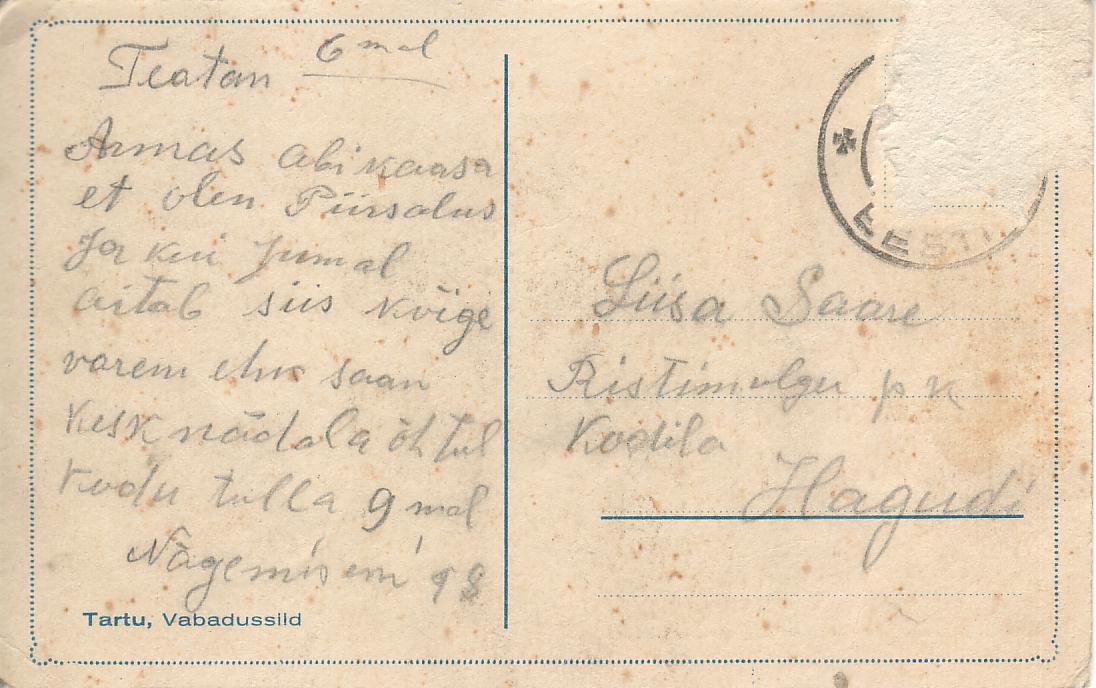 6 mal
Teatan
Armas abikaasa
et olen Piirsalus
Ja kui Jumal
aitab siis kõige
varem ehk saan
kesk nädala õhtul
kodu tulla 9 mal
Nägemiseni
Tartu, Vabadussild
EESTI
Liisa Saare
Ristimulgu p k
Kodila
Hagudi